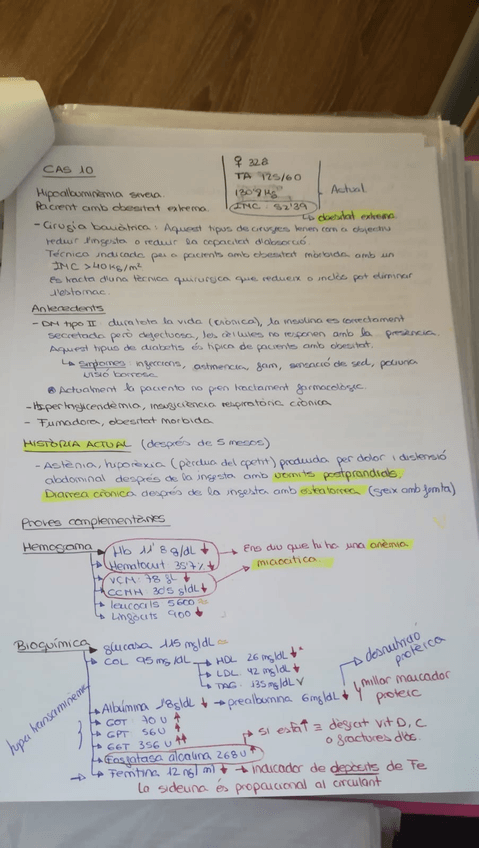 CAS 10
♀ 32a
TA 125/60
130'9 Kg
IMC: 52'39
Actual
↳ obesitat extrema
Hipoalbuminèmia severa.
Pacient amb obesitat extrema.
- Cirugia bariàtrica: Aquest tipus de cirugies tenen com a objectiu
reduir l'ingesta o reduir la capacitat d'absorció.
Tècnica indicada per a pacients amb obesitat mòrbida amb un
IMC >40 Kg/m²
és tracta d'una tècnica quirurgica que redueix o inclòs pot eliminar
l'estomac.
Antecedents
- DM tipo II: dura tota la vida (crònica), la insulina es correctament
secretada però defectuosa, les cèl·lules no responen amb la presència.
Aquest tipus de diabetis és típica de pacients amb obesitat.
↳ Símptomes: infeccions, astmencia, fam, sensació de sed, poliuria
visió borrosa.
Actualment la pacient no pren tractament farmacològic.
- Hipertrigliceridèmia, insuficiència respiratòria crònica
- Fumadora, obesitat mòrbida
HISTÒRIA ACTUAL (després de 5 mesos)
- Astènia, hiporèxia (pèrdua del apetit) produida per dolor i distensió
abdominal després de la ingesta amb vòmits postprandials.
Diarrea crònica després de la ingesta amb esteatorrea (greix amb femta)
Proves complementàries
Hemograma → Hb 11'8 g/dL ↓
→ Hematocrit 35'7% ↓
→ VCM 78 ↓
→ CCMH 30'5 g/dL ↓
→ leucocits 5600 =
→ Limfocits 900 ↓
→ Ens diu que hi ha una anèmia
microcítica.
Bioquímica → glucosa 115 mg/dL =
→ COL 95 mg/dL → HDL 26 mg/dL ↓
→ LDL 42 mg/dL ↓
→ TAG 135 mg/dL V
→ Albúmina 1'8 g/dL ↓ → prealbumina 6 mg/dL ↓
desnutrició
proteica
millor marcador
proteic
→ GOT 70 U ↑
→ GPT 56 U ↑
→ GGT 356 U ↑↑
hipertransaminèmia
→ Fosfatasa alcalina 268 U ↑
→ si està ↑ = dèficit vit D, C
o fractures d'os.
→ Ferritina 12 ng/ml ↓ → Indicador de depòsits de Fe
La sideuria és proporcional al circulant